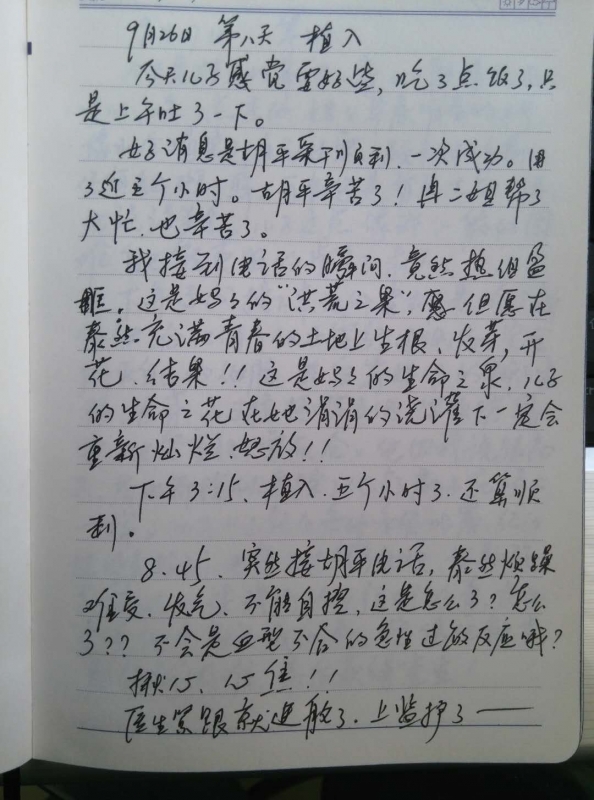 9月26日 第八天 植入
今天儿子感觉要好些,吃了点饭了,只
是上午吐了一下。
好消息是胡平采刊顺利、一次成功。用
了近五个小时。胡平辛苦了!冉二姐帮了
大忙、也辛苦了。
我接到电话的瞬间、竟然热泪盈
眶。这是妈妈的“洪荒之果”,但愿在
泰然充满青春的土地上生根、发芽,开
花、结果!!这是妈妈的生命之泉、儿子
的生命之花在她涓涓的浇灌下一定会
重新灿烂、怒放!!
下午3:15、植入、五个小时了、还算顺
利。
8.45、突然接胡平电话,泰然烦躁
难受、发气、不能自控,这是怎么了?怎么
了??不会是血型不合的急性过敏反应哦?
担心、心焦!!
医生紧跟就进舱了、上监护了——